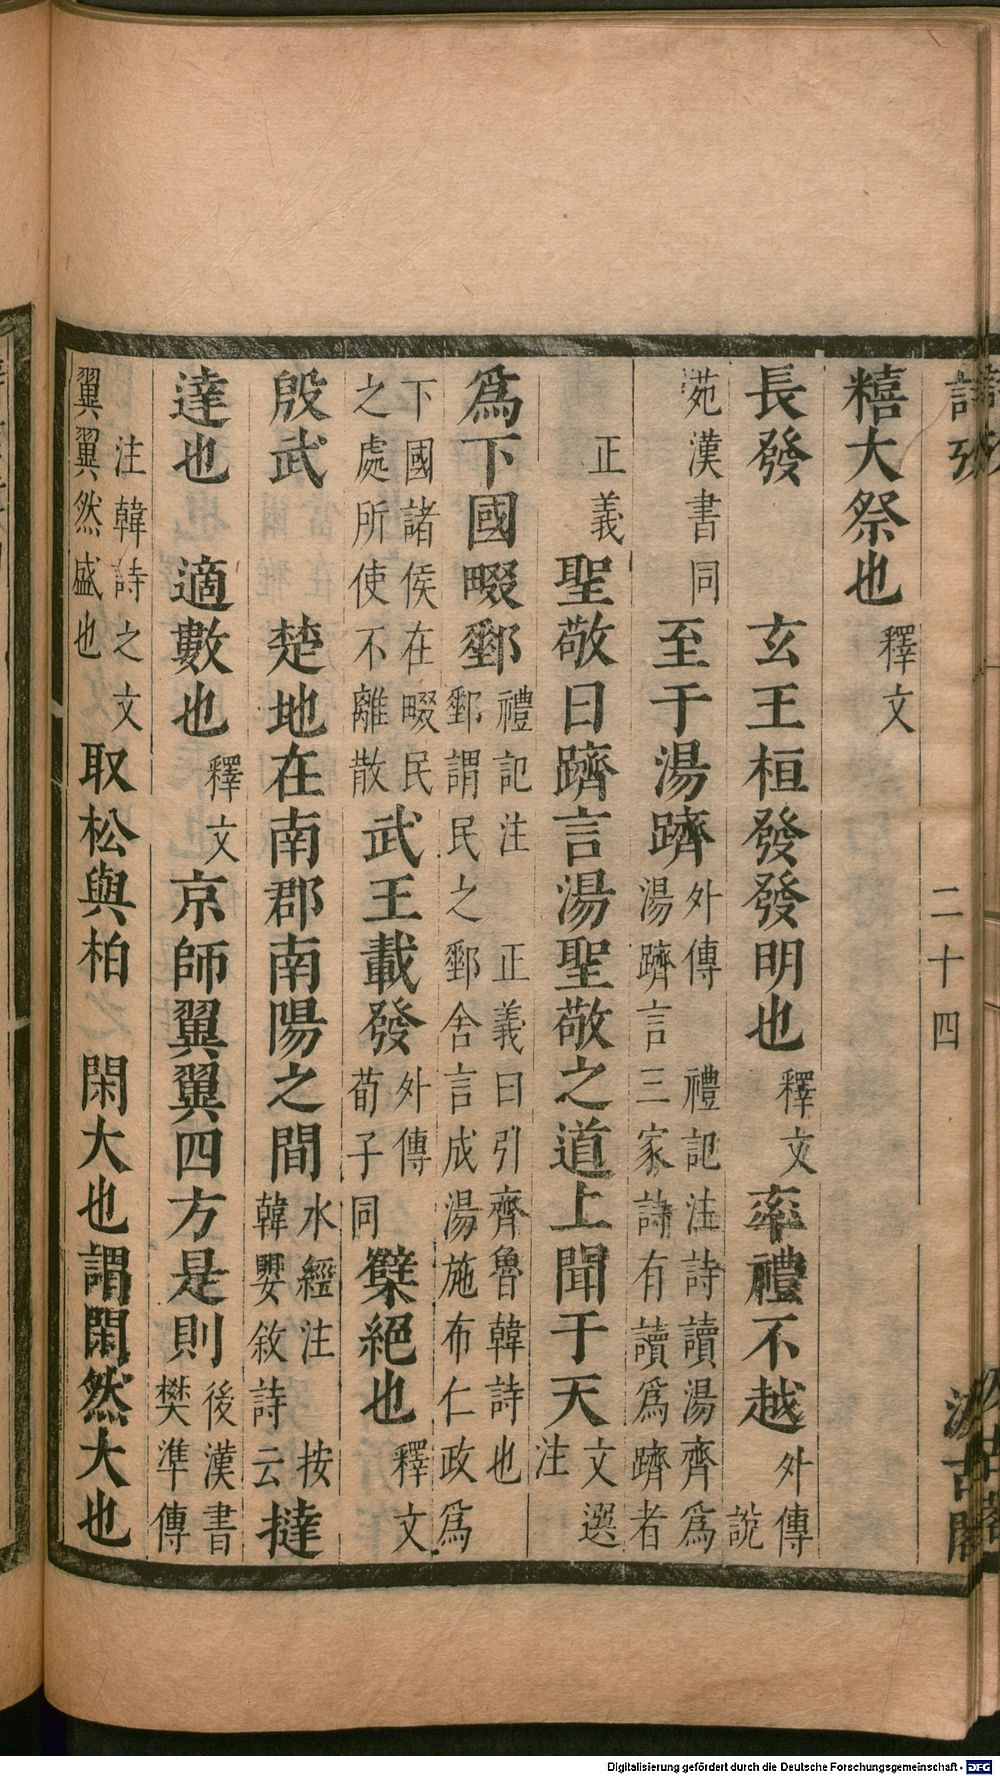 詩攷 二十四 汲古閣
糦大祭也 釋文
長發 玄王桓發發明也 釋文 率禮不越 外傳說
苑漢書同 至于湯躋 外傳 禮記注詩讀湯齊爲湯躋言三家詩有讀爲躋者
正義 聖敬曰躋言湯聖敬之道上聞于天 文選注
爲下國畷郵 禮記注 正義曰引齊魯韓詩也郵謂民之郵舍言成湯施布仁政爲
下國諸侯在畷民之處所使不離散 武王載發 外傳荀子同 糱絕也 釋文
殷武 楚地在南郡南陽之間 水經注 按韓嬰敘詩云 撻
達也 適數也 釋文 京師翼翼四方是則 後漢書樊準傳
注韓詩之文翼翼然盛也 取松與柏 閑大也謂閑然大也
Digitalisierung gefördert durch die Deutsche Forschungsgemeinschaft - DFG